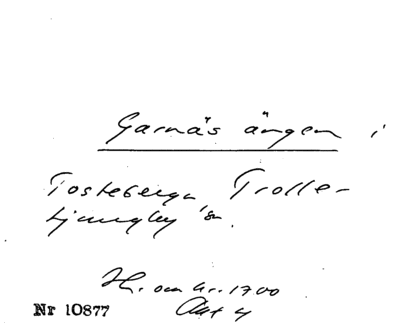 Garnäs ängen i
Tosteberga, Trolle-
Ljungby sn.
H. om kr. 1700
Akt 4
Nr 10877